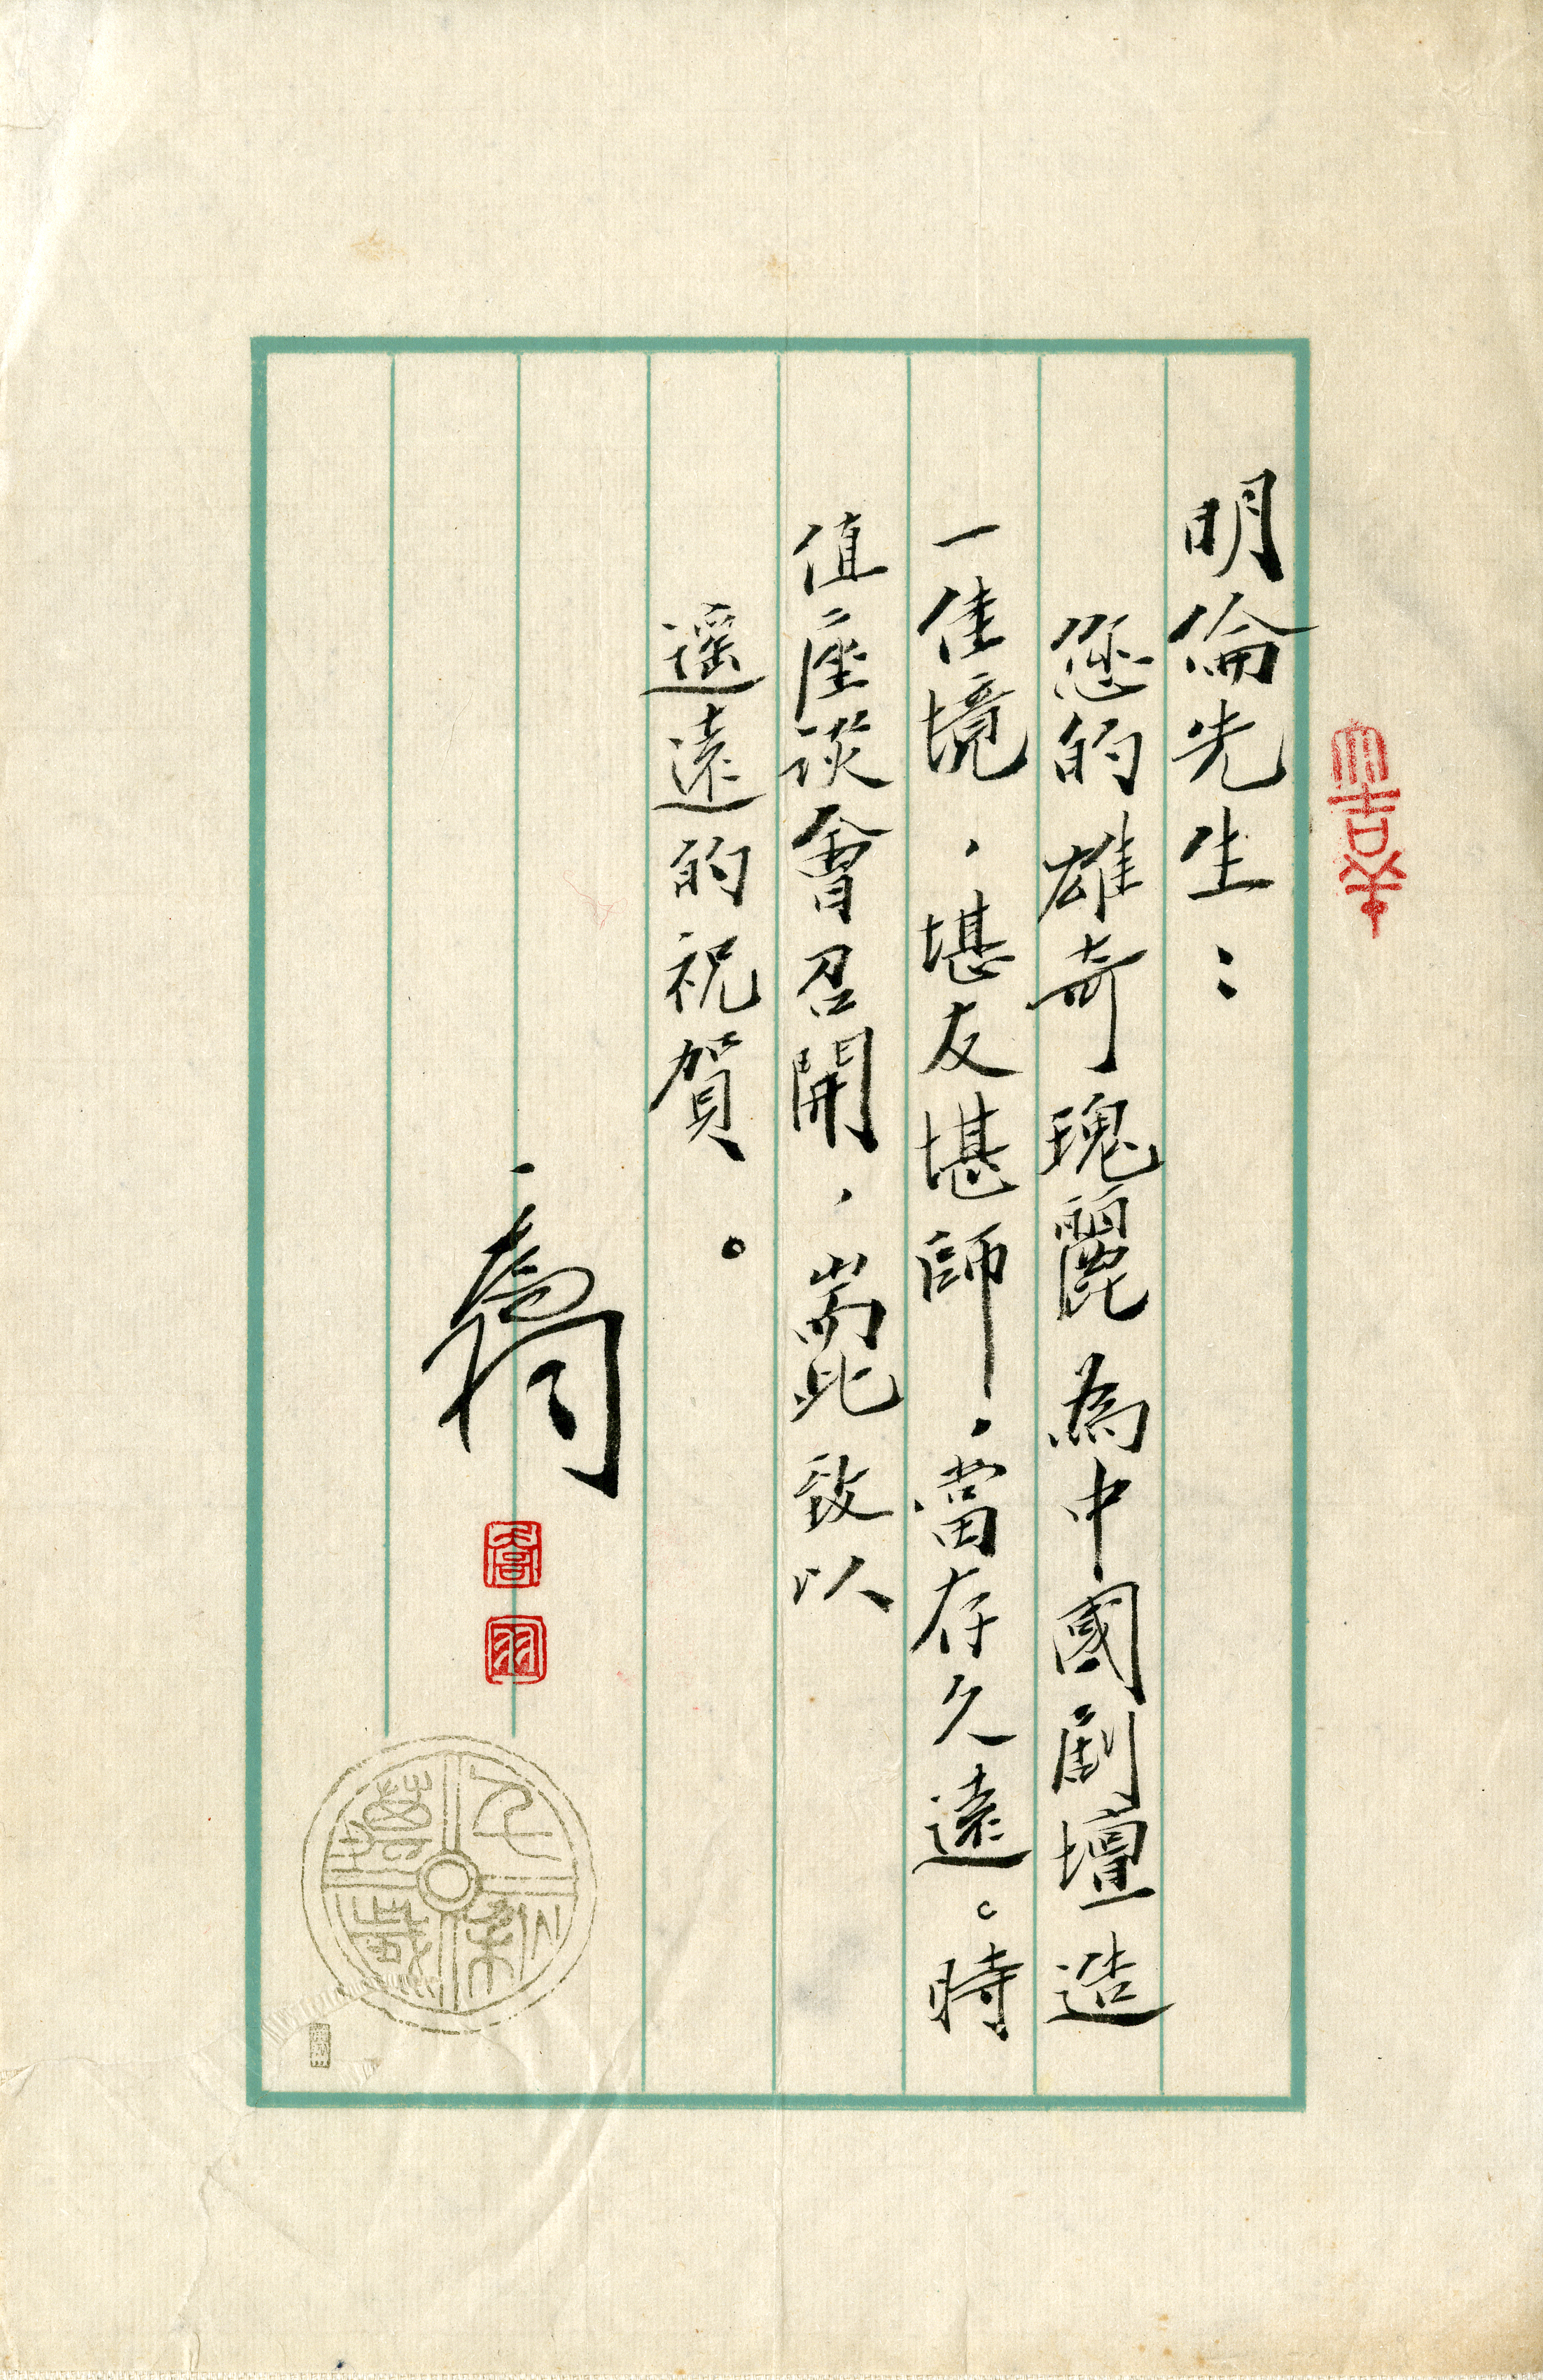 明倫先生：
您的雄奇瑰麗為中國劇壇造
一佳境，堪友堪師，當存久遠。時
值座談會召開，耑此致以
遥遠的祝賀。